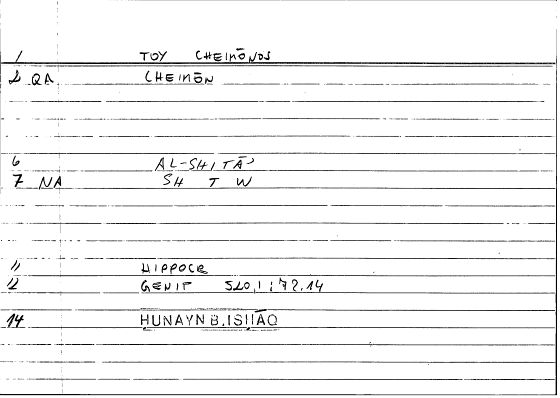 1 TOY CHEIMŌNOS
2 QA CHEIMŌN
6 AL-SHITĀʾ
7 NA SH T W
11 HIPPOCR
12 GENIT 520,1:72.14
14 HUNAYN B.ISḤĀQ